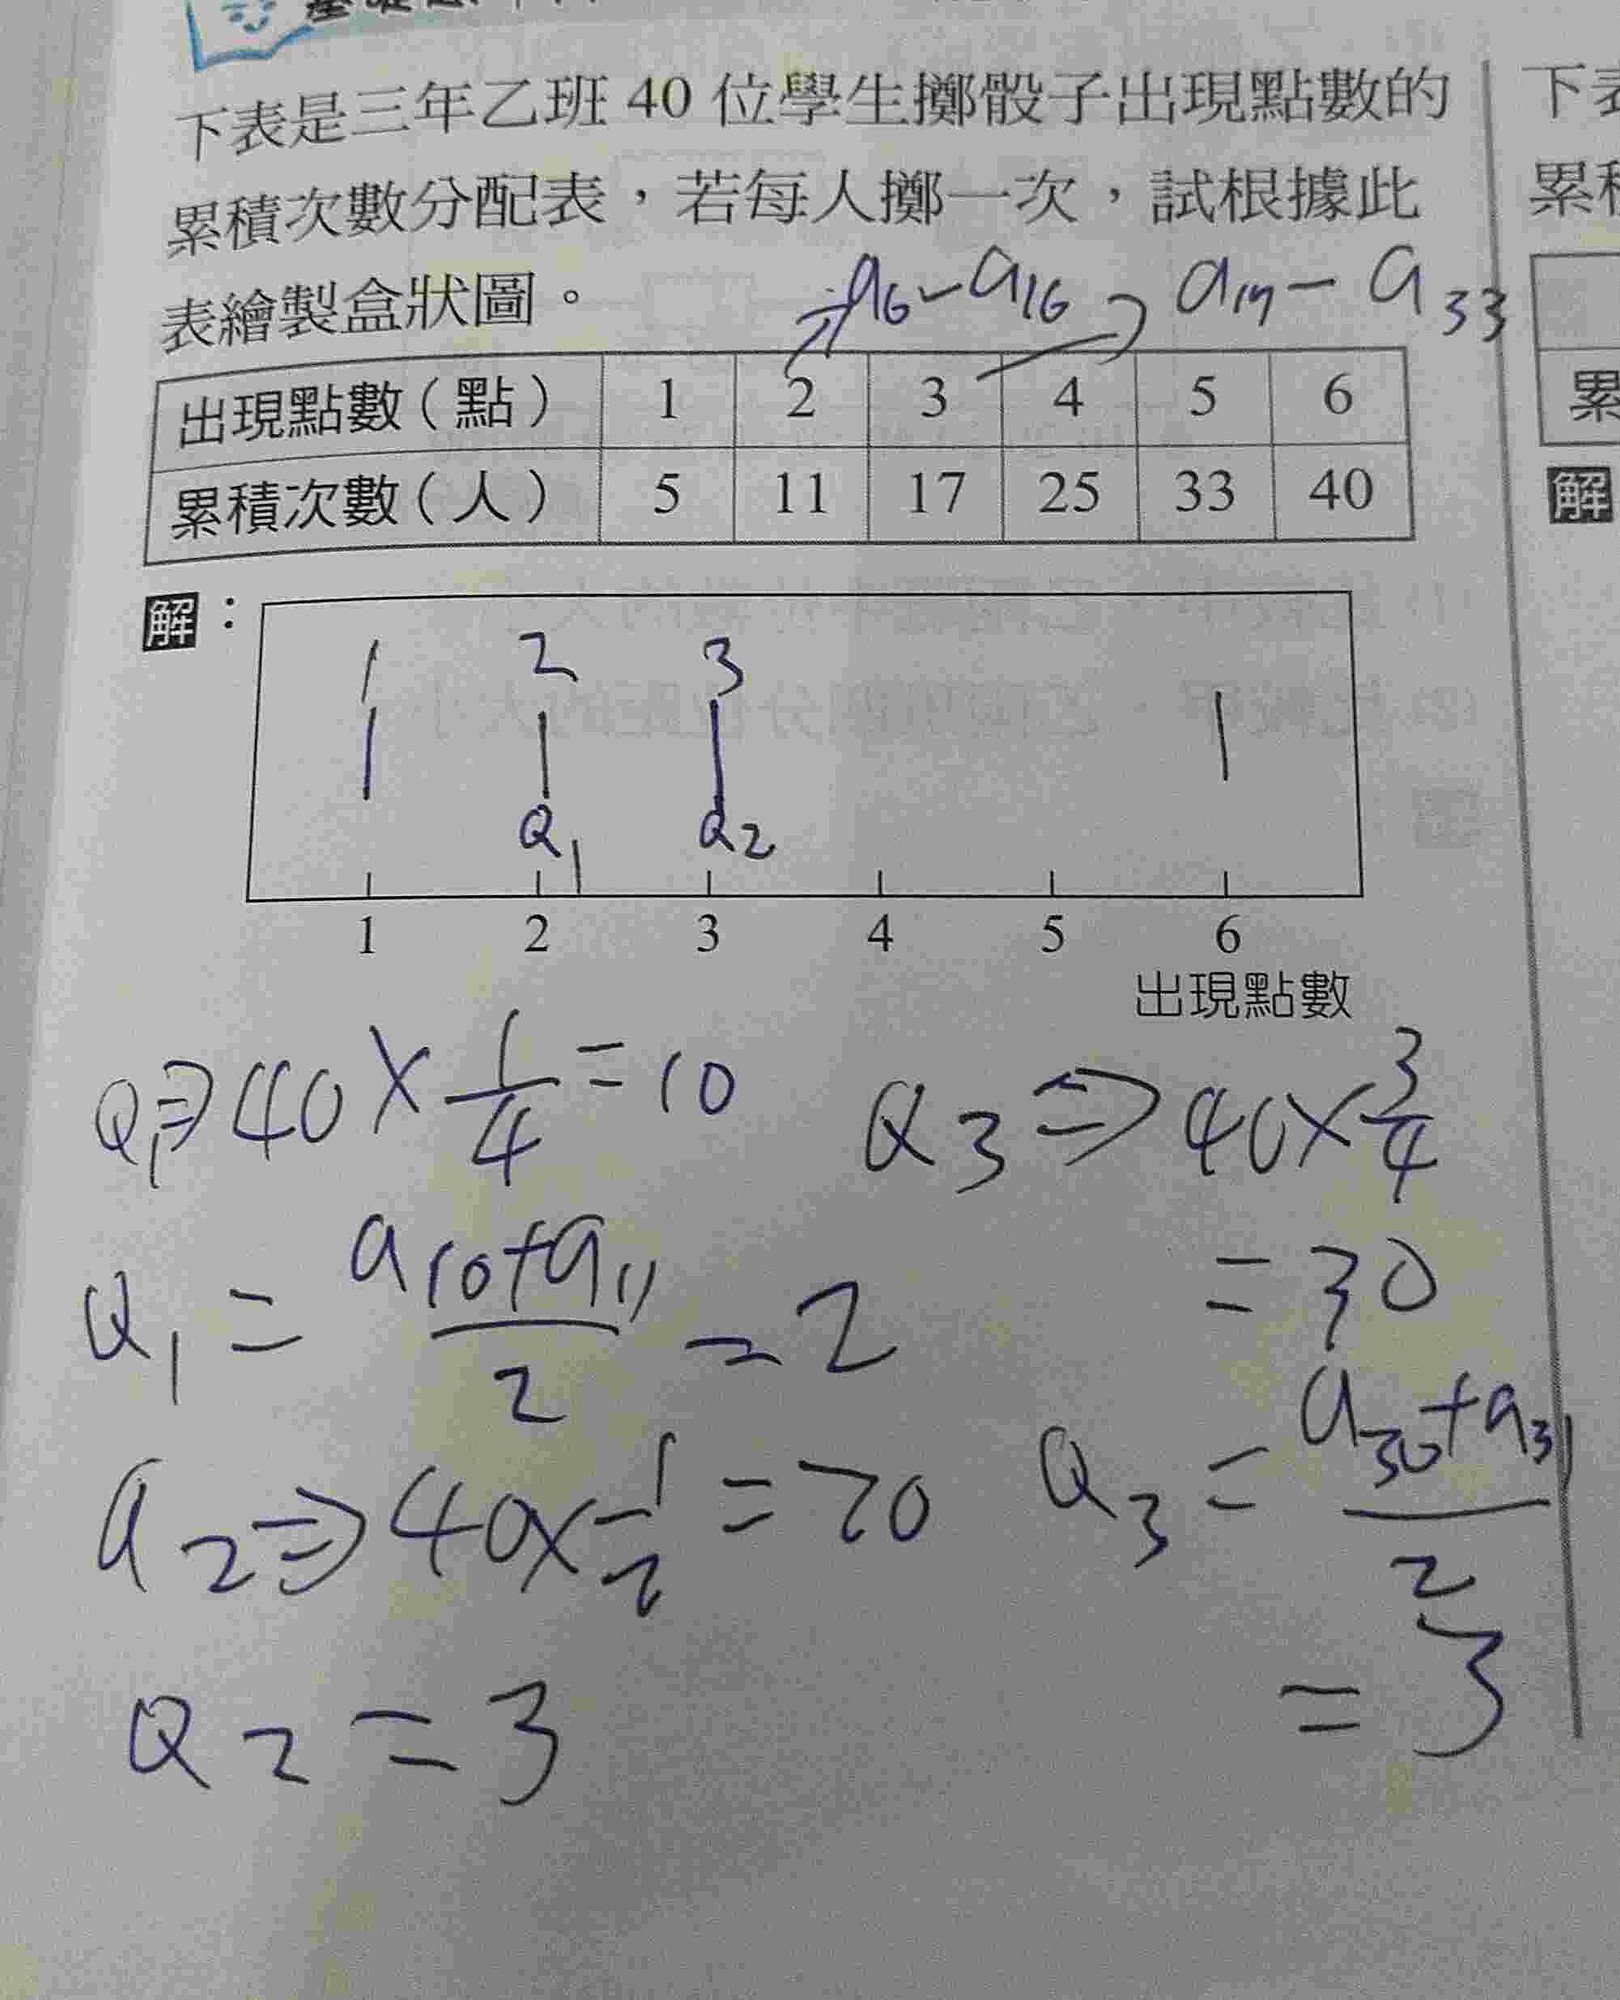 下表是三年乙班 40 位學生擲骰子出現點數的
累積次數分配表，若每人擲一次，試根據此
表繪製盒狀圖。
a6~a16 a17-a33
出現點數(點) 1 2 3 4 5 6
累積次數(人) 5 11 17 25 33 40
解：
1 2 3
Q1 Q2
1 2 3 4 5 6
出現點數
Q1⇒40×1/4=10
Q3⇒40×3/4
=30
Q1=(a10+a11)/2=2
Q3=(a30+a31)/2
=3
a2⇒40×1/2=20
Q2=3
下表
累積
累
解